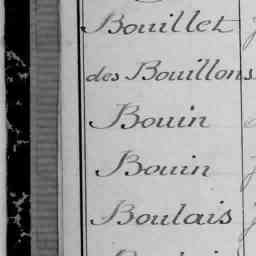 Bouillet
des Bouillons
Bouin
Bouin
Boulais